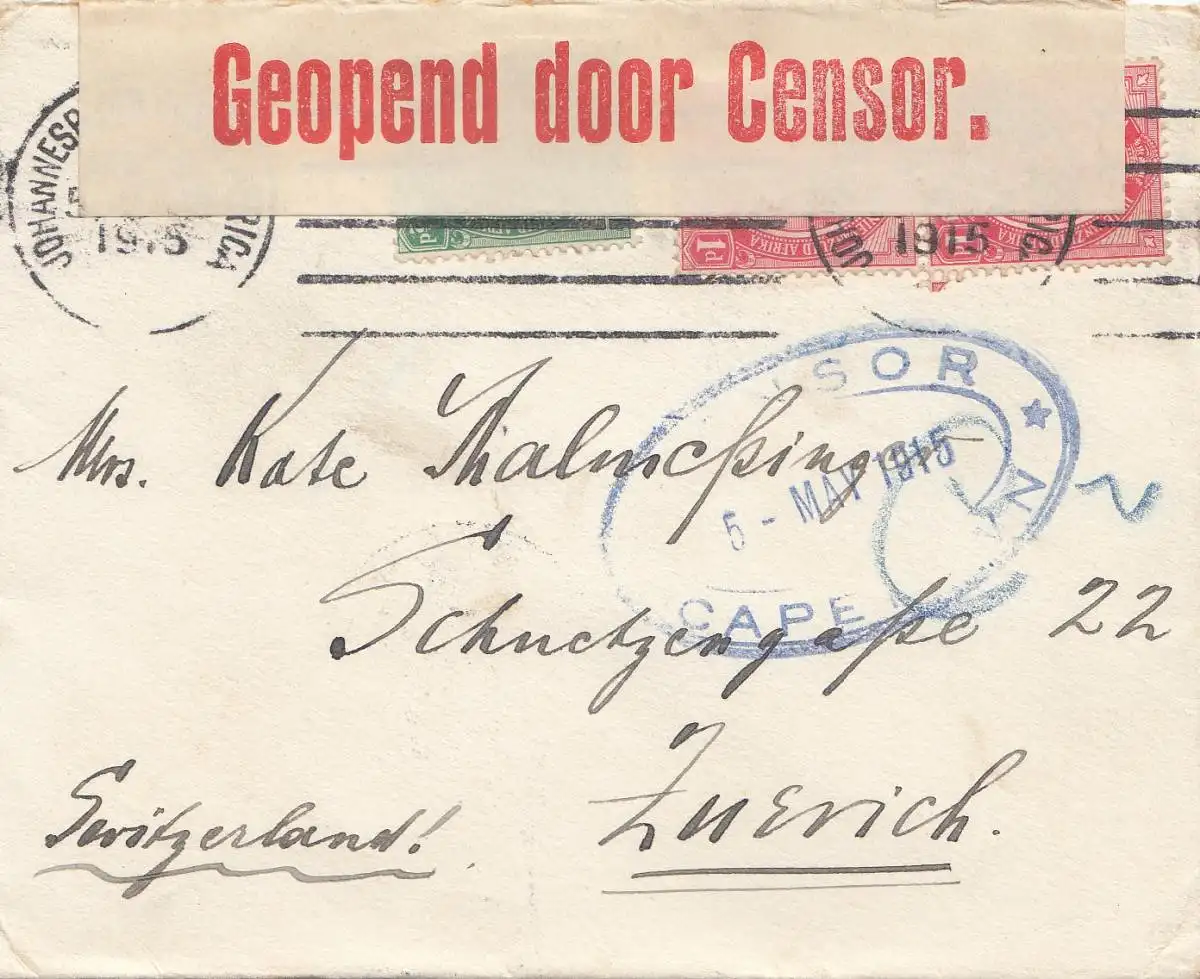 Geopend door Censor.
JOHANNESB
RICA
1915
1d
1d
JOH
1915
RICA
SOR
5 - MAY 1915
CAPE
N
Mrs. Kate Thalmeßinger
Schuetzengaße 22
Zuerich.
Switzerland!